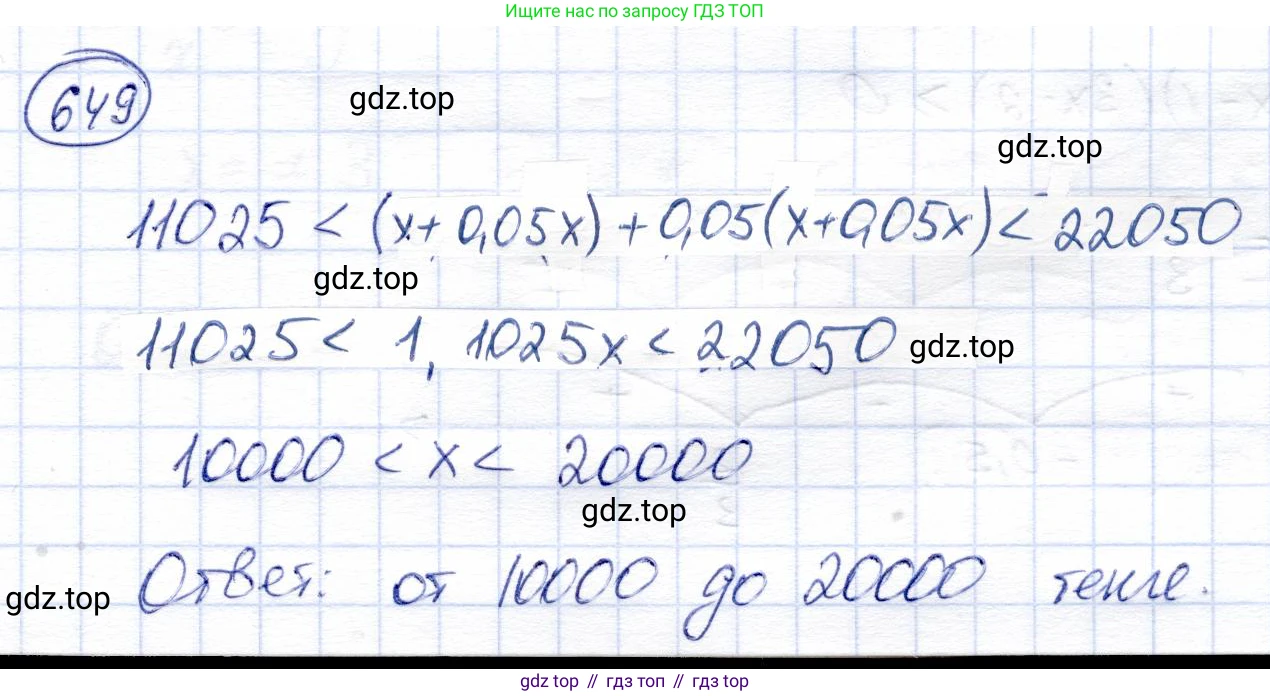 Ищите нас по запросу ГДЗ ТОП
649
gdz.top
gdz.top
11025 < (x + 0,05x) + 0,05(x+0,05x) < 22050
gdz.top
11025 < 1,1025x < 22050
gdz.top
10000 < x < 20000
gdz.top
Ответ: от 10000 до 20000 тенге.
gdz.top
gdz top // гдз топ // gdz top